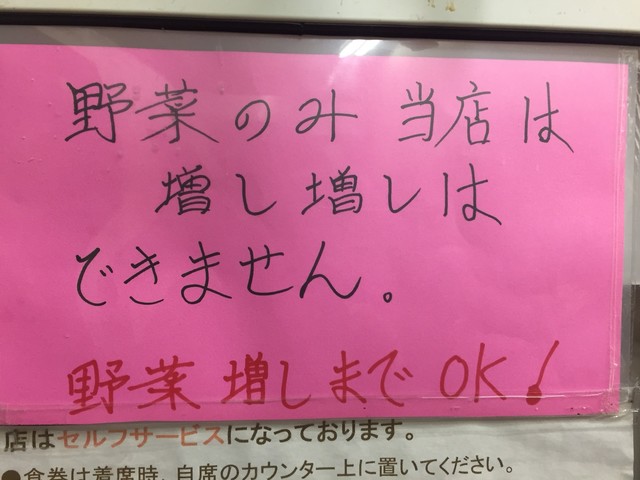 野菜のみ当店は
増し増しは
できません。
野菜増しまでOK!
店はセルフサービスになっております。
●食券は着席時、自席のカウンター上に置いてください。